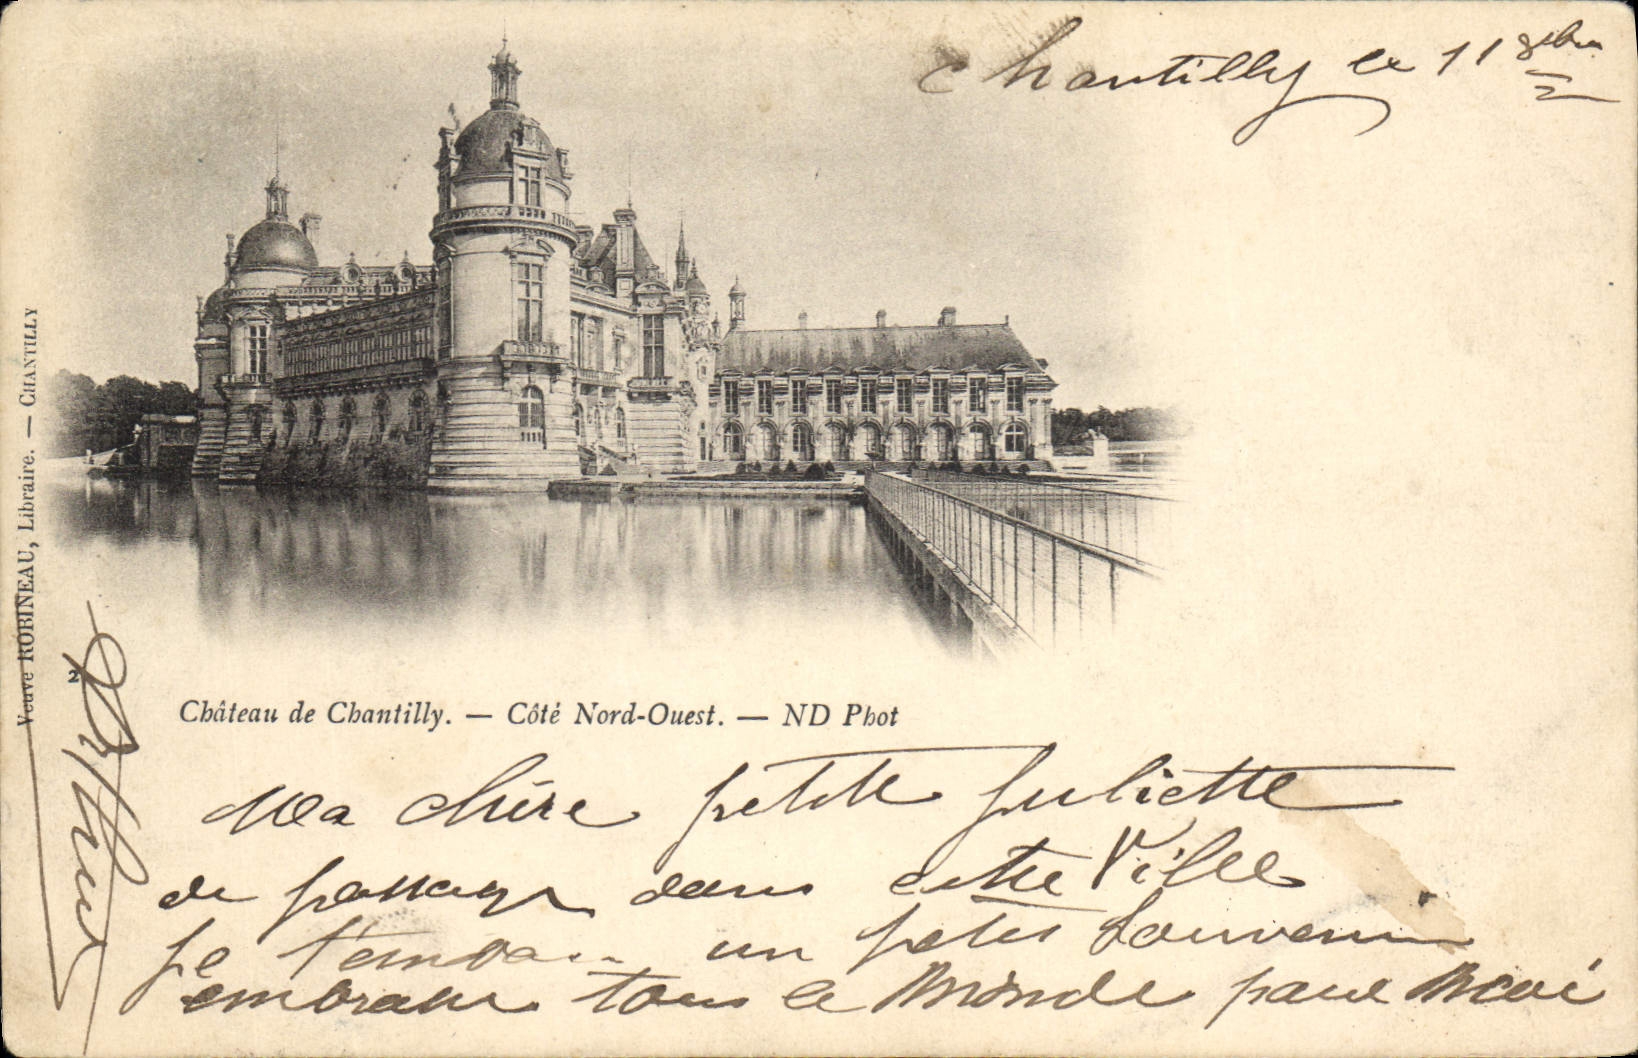 Chantilly le 11 8bre
Veuve ROBINEAU, Libraire. — CHANTILLY
2
Château de Chantilly. — Côté Nord-Ouest. — ND Phot
Ma chére petite Juliette
de passage dans cette Ville
je t'envoi un petit Souvenir
embrasse tous le Monde pour Moi